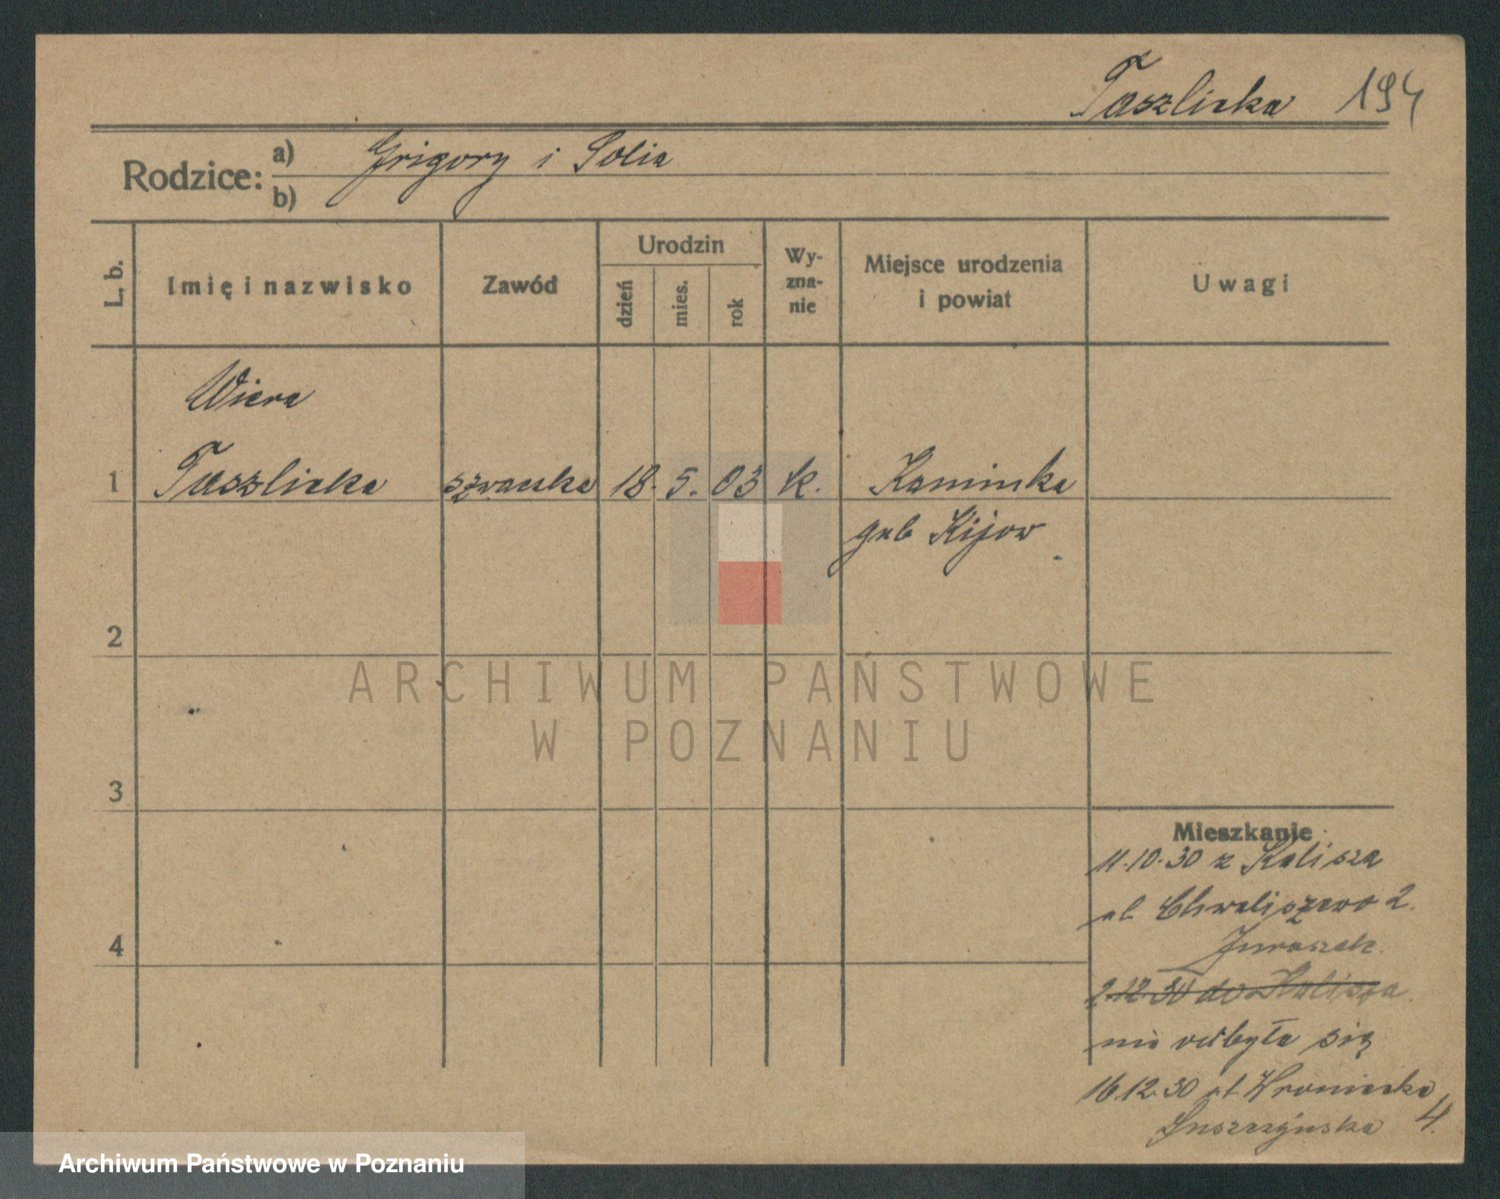 Taszlicka 194
Rodzice: a) Grigory i Solia
b)
L. b.
Imię i nazwisko
Zawód
Urodzin
dzień
mies.
rok
Wy-
zna-
nie
Miejsce urodzenia
i powiat
Uwagi
Wiera
1 Taszlicka szwaczka 18. 5. 03 k. Kaminka
gub Kijow
2
3
4
Mieszkanie
11.10.30 z Kalisza
ul. Chwaliszewo 2.
Juraszek.
2.12.30 do Kalisza
nie odbyła się
16.12.30 ul Wroniecka 4.
ARCHIWUM PAŃSTWOWE
W POZNANIU
Archiwum Państwowe w Poznaniu